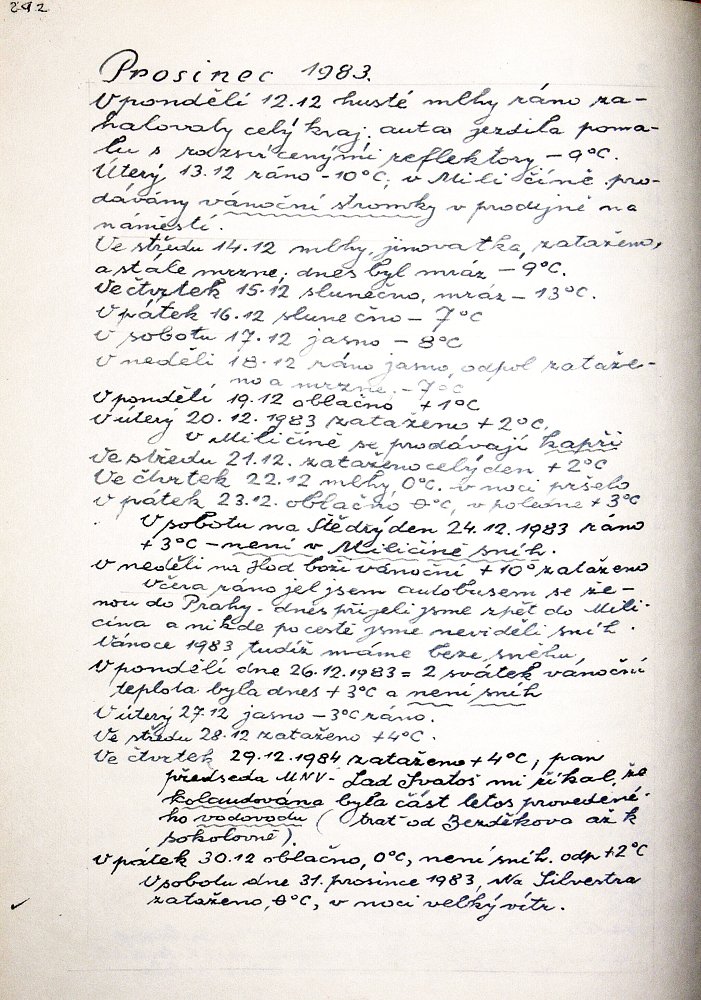 292
Prosinec 1983.
V pondělí 12.12 husté mlhy ráno za-
halovaly celý kraj, auta jezdila poma-
lu s rozsvícenými reflektory – 9°C.
Úterý 13.12 ráno -10°C, v Miličíně pro-
dávány vánoční stromky v prodejně na
náměstí.
Ve středu 14.12 mlhy, jinovatka, zataženo,
a stále mrzne, dnes byl mráz – 9°C.
Ve čtvrtek 15.12 slunečno, mráz – 13°C.
V pátek 16.12 slunečno – 7°C
V sobotu 17.12 jasno – 8°C
V neděli 18.12 ráno jasno, odpol zataže-
no a mrzne, – 7°C
V pondělí 19.12 oblačno +1°C
V úterý 20.12.1983 zataženo +2°C,
v Miličíně se prodávají kapři
Ve středu 21.12. zataženo celý den +2°C
Ve čtvrtek 22.12 mlhy, 0°C. v noci pršelo
V pátek 23.12. oblačno 0°C, v poledne +3°C
V sobotu na Štědrý den 24.12.1983 ráno
+3°C – není v Miličíně sníh.
V neděli na Hod boží vánoční +10° zataženo
Včera ráno jel jsem autobusem se že-
nou do Prahy – dnes přijeli jsme zpět do Mili-
čína a nikde po cestě jsme neviděli sníh.
Vánoce 1983 tudíž máme beze sněhu
V pondělí dne 26.12.1983 = 2 svátek vánoční
teplota byla dnes +3°C a není sníh
V úterý 27.12 jasno – 3°C ráno.
Ve středu 28.12 zataženo +4°C.
Ve čtvrtek 29.12.1984 zataženo +4°C, pan
předseda MNV – Lad Svatoš mi říkal, že
kolaudována byla část letos provedené-
ho vodovodu ( trať od Bezděkova až k
sokolovně).
V pátek 30.12 oblačno, 0°C, není sníh. odp +2°C
V sobotu dne 31. prosince 1983, Na Silvestra
zataženo, 0°C, v noci velký vítr.